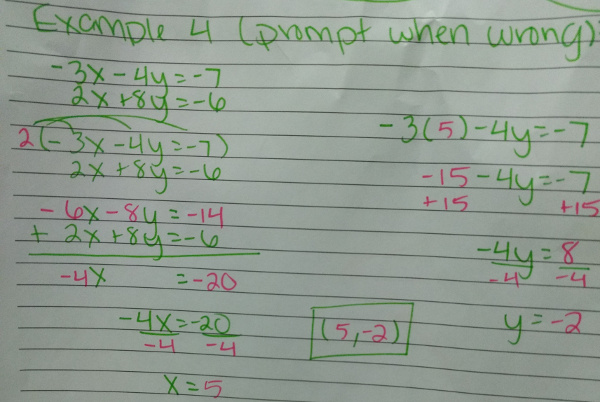 Example 4 (prompt when wrong):
-3x-4y=-7
2x+8y=-6
2(-3x-4y=-7)
2x+8y=-6
-6x-8y=-14
+ 2x+8y=-6
-4x =-20
-4x=-20
-4 -4
x=5
(5,-2)
-3(5)-4y=-7
-15-4y=-7
+15 +15
-4y=8
-4 -4
y=-2